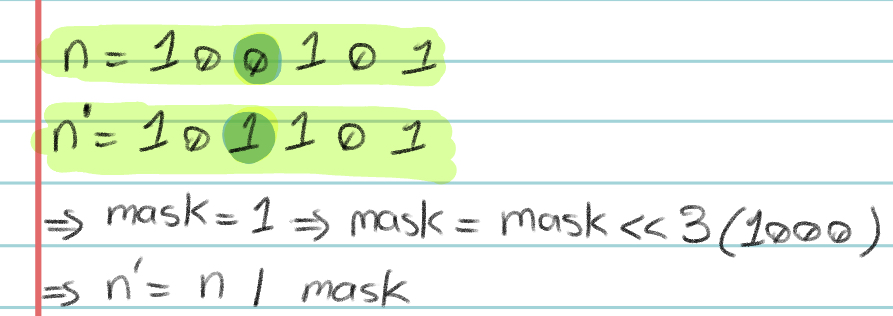 n = 1 0 0 1 0 1
n' = 1 0 1 1 0 1
⇒ mask = 1 ⇒ mask = mask << 3 (1000)
⇒ n' = n | mask